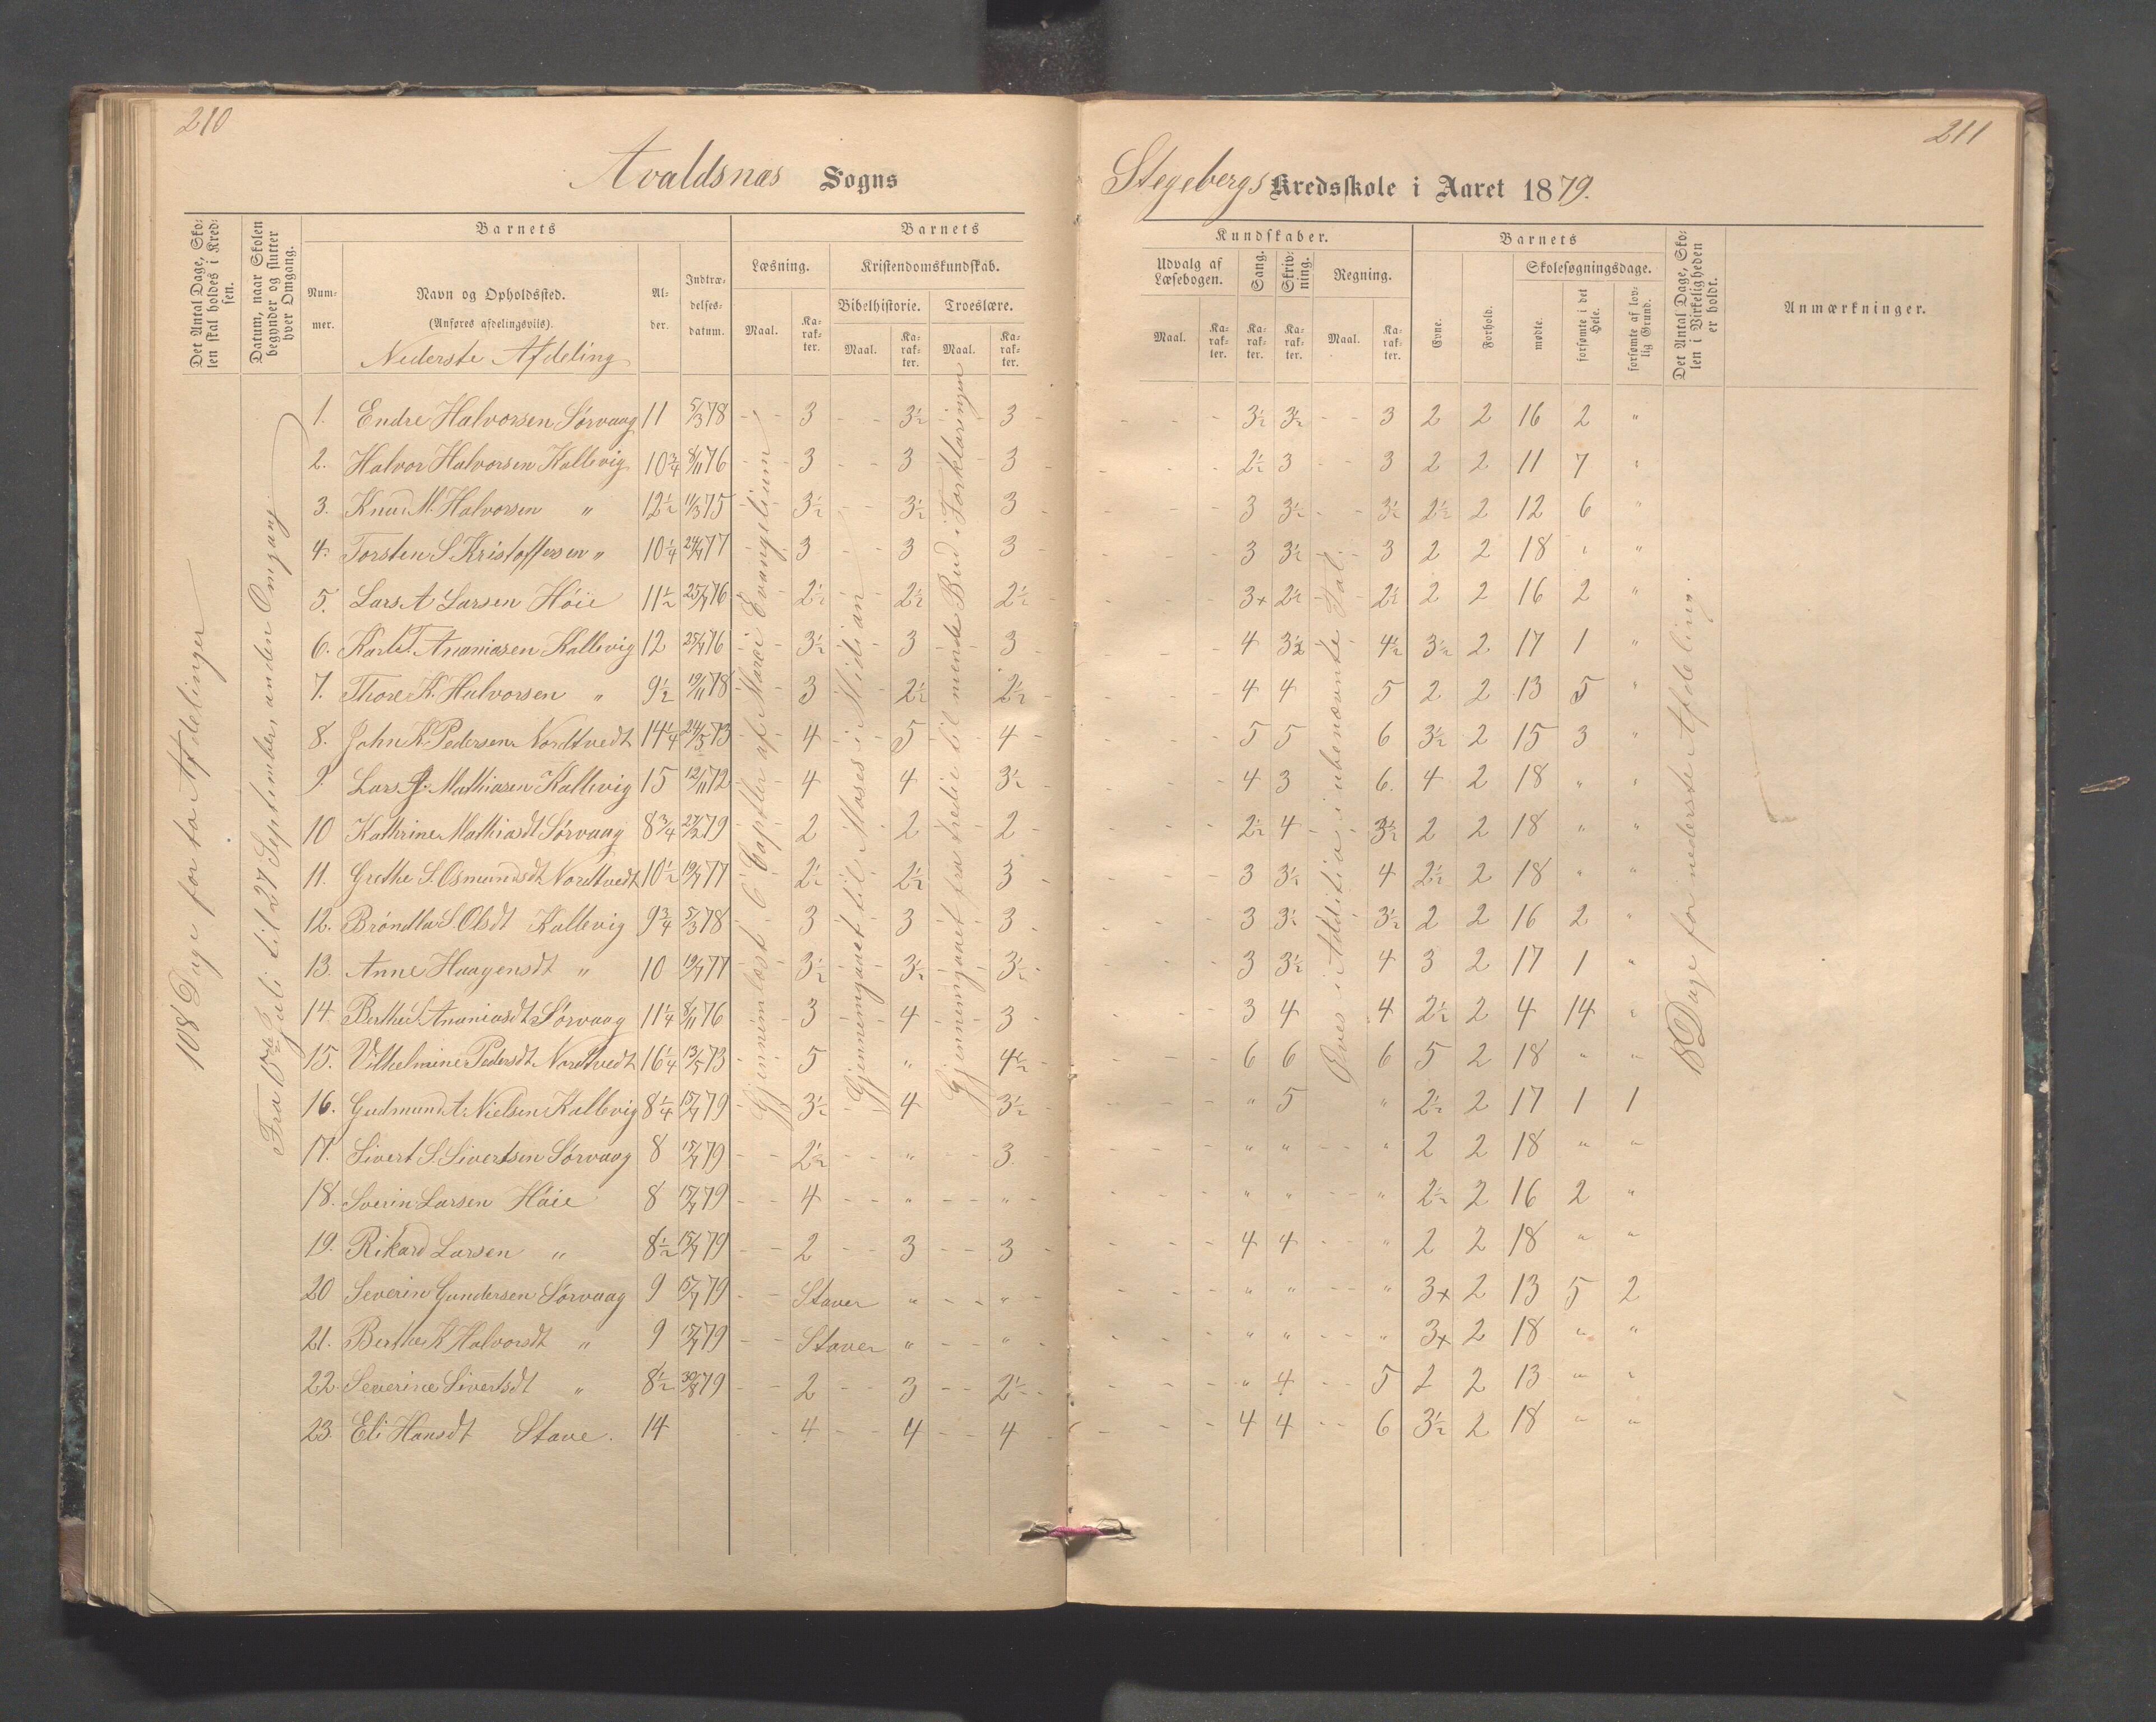 210
211
Avaldsnæs Sogns
Stegebergs Kredsskole i Aaret 1879.
Det Antal Dage, Skolen skal holdes i Kredsen.
Datum, naar Skolen begynder og slutter hver Omgang.
Barnets
Barnets
Kundskaber.
Barnets
Det Antal Dage, Skolen i Virkeligheden er holdt.
Anmærkninger.
Nummer.
Navn og Opholdssted.
(Anføres afdelingsviis).
Nederste Afdeling
Alder.
Indtrædelsesdatum.
Læsning.
Kristendomskundskab.
Bibelhistorie.
Troeslære.
Maal.
Karakter.
Maal.
Karakter.
Maal.
Karakter.
Udvalg af Læsebogen.
Sang.
Skrivning.
Regning.
Maal.
Karakter.
Karakter.
Karakter.
Maal.
Karakter.
Evne.
Forhold.
Skolesøgningsdage.
mødte.
forsømte i det Hele.
forsømte af lovlig Grund.
108 Dage for to Afdelinger
Fra 15de Juli til 27 September, anden Omgang.
Gjennemlæst 6 Capitler af Marci Evangelium
Gjennemgaaet til Moses i Midian
Gjennemgaaet fra tredie til niende Bud i Forklaringen
Øves i Addition i ubenævnte Tal.
18 Dage for nederste Afdeling.
1. Endre Halvorsen Sørvaag 11 5/3 78 3 3½ 3 3½ 3½ 3 2 2 16 2 "
2. Halvor Halvorsen Kallevig 10¾ 8/11 76 3 3 3 2½ 3 3 2 2 11 7 "
3. Knud M. Halvorsen " 12½ 11/3 75 3½ 3½ 3 3 3½ 3½ 2½ 2 12 6 "
4. Torsten S. Kristoffersen " 10¼ 24/4 77 3 3 3 3 3½ 3 2 2 18 " "
5. Lars A Larsen Höie 11½ 25/4 76 2½ 2½ 2½ 3+ 2½ 2½ 2 2 16 2 "
6. Karl T. Ananiasen Kallevig 12 25/4 76 3½ 3 3 4 3½ 4½ 3½ 2 17 1 "
7. Thore K. Halvorsen " 9½ 19/11 78 3 2½ 2½ 4 4 5 2 2 13 5 "
8. John K. Pedersen Nordtvedt 14¼ 24/5 73 4 5 4 5 5 6 3½ 2 15 3 "
9. Lars J. Mathiasen Kallevig 15 12/11 72 4 4 3½ 4 3 6. 4 2 18 " "
10 Kathrine Mathiasdt Sørvaag 8¾ 27/2 79 2 2 2 2½ 4 3½ 2 2 18 " "
11. Grethe S. Osmundsdt Nordtvedt 10½ 19/4 77 2½ 2½ 3 3 3½ 4 2½ 2 18 " "
12. Brøndla S Olsdt Kallevig 9¾ 5/3 78 3 3 3 3 3½ 3½ 2 2 16 2 "
13. Anne Haagensdt " 10 19/4 77 3½ 3½ 3½ 3 3½ 4 3 2 17 1 "
14. Berthe S. Ananiasdt Sørvaag 11¼ 8/11 76 3 4 3 3 4 4 2½ 2 4 14 "
15. Vilhelmine Pedersdt Nordtvedt 16¼ 13/5 73 5 " 4½ 6 6 6 5 2 18 " "
16. Gudmund A. Nielsen Kallevig 8¼ 15/7 79 3½ 4 3½ " 5 " 2½ 2 17 1 1
17. Sivert S. Sivertsen Sørvaag 8 15/7 79 2½ " 3 " " " 2 2 18 " "
18. Sverin Larsen Höie 8 15/7 79 4 " " " " " 2½ 2 16 2 "
19. Rikard Larsen " 8½ 15/7 79 2 3 3 4 4 " 2 2 18 " "
20 Severin Gundersen Sørvaag 9 15/7 79 Staver " " " " " 3+ 2 13 5 2
21. Berthe K Halvorsdt " 9 15/7 79 Staver " " " " " 3+ 2 18 " "
22. Severine Sivertsdt " 8½ 30/8 79 2 3 2½ " 4 5 2 2 13 " "
23. Eli Hansdt Stave. 14 4 4 4 4 4 6 3½ 2 18 " "